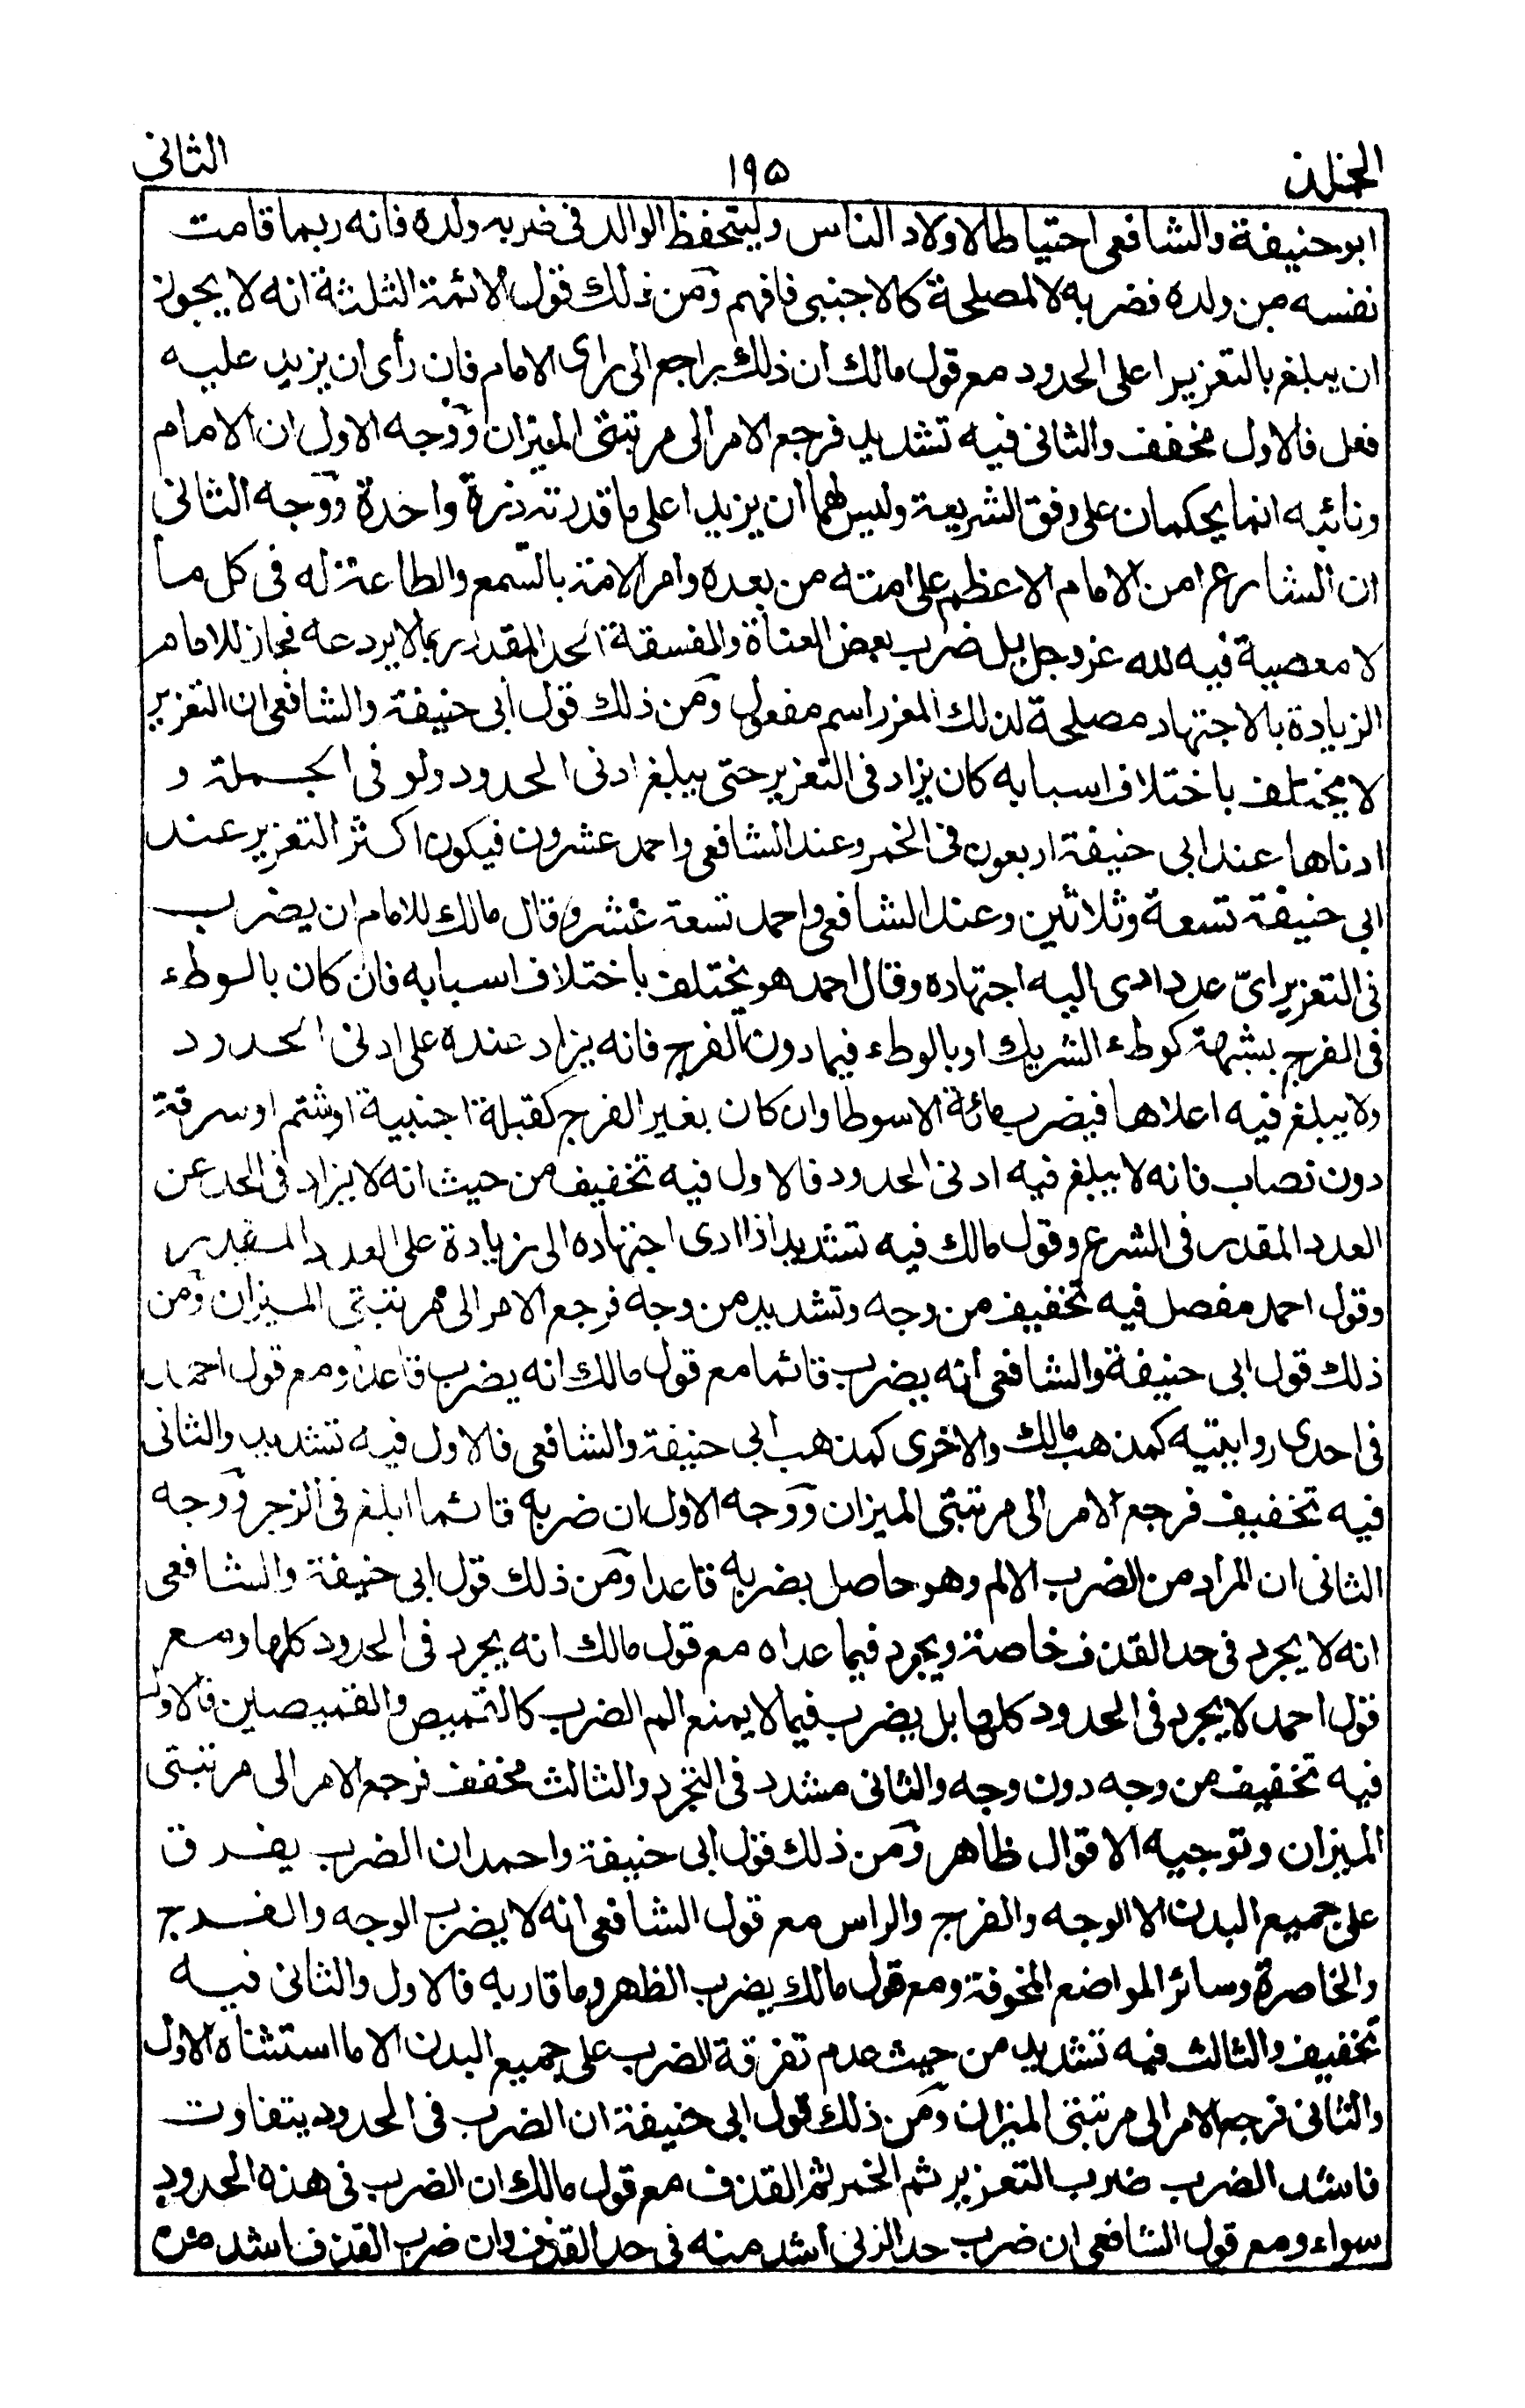 الجلد ١٩٥ الثانى
ابو حنيفة والشافعى احتياطا لاولاد الناس وليتحفظ الوالد فى ضربه ولده فانه ربما قامت
نفسه من ولده فضربه لا لمصلحة كالاجنبى فافهم ومن ذلك قول الائمة الثلثة انه لا يجوز
ان يبلغ بالتعزير اعلى الحدود مع قول مالك ان ذلك راجع الى راى الامام فان رأى ان يزيد عليه
فعل فالاول مخفف والثانى فيه تشديد فرجع الامر الى مرتبتى الميزان ووجه الاول ان الامام
ونائبه انما يحكمان على وفق الشريعة وليس لهما ان يزيدا على ما قدرته ذرة واحدة ووجه الثانى
ان الشارع امن الامام الاعظم على امته من بعده وامر الامة بالسمع والطاعة له فى كل ما
لا معصية فيه لله عز وجل بل ضرب بعض العتاة والفسقة الحد المقدر ربما لا يردعه فجاز للامام
الزيادة بالاجتهاد مصلحة لذلك المعزر اسم مفعول ومن ذلك قول ابى حنيفة والشافعى ان التعزير
لا يختلف باختلاف اسبابه كان يزاد فى التعزير حتى يبلغ ادنى الحدود ولو فى الجملة و
ادناها عند ابى حنيفة اربعون فى الخمر وعند الشافعى واحمد عشرون فيكون اكثر التعزير عند
ابى حنيفة تسعة وثلاثين وعند الشافعى واحمد تسعة عشر وقال مالك للامام ان يضرب
فى التعزير اىّ عدد ادى اليه اجتهاده وقال احمد هو يختلف باختلاف اسبابه فان كان بالوطء
فى الفرج بشبهة كوطء الشريك او بالوطء فيما دون الفرج فانه يزاد عنده على ادنى الحدود
ولا يبلغ فيه اعلاها فيضرب مائة الا سوطا وان كان بغير الفرج كقبلة اجنبية او شتم او سرقة
دون نصاب فانه لا يبلغ فيه ادنى الحدود فالاول فيه تخفيف من حيث انه لا يزاد فى الحد عن
العدد المقدر فى الشرع وقول مالك فيه تشديد اذا ادى اجتهاده الى زيادة على العدد المقدر
وقول احمد مفصل فيه تخفيف من وجه وتشديد من وجه فرجع الامر الى مرتبتى الميزان ومن
ذلك قول ابى حنيفة والشافعى انه يضرب قائما مع قول مالك انه يضرب قاعدا ومع قول احمد
فى احدى روايتيه كمذهب مالك والاخرى كمذهب ابى حنيفة والشافعى فالاول فيه تشديد والثانى
فيه تخفيف فرجع الامر الى مرتبتى الميزان ووجه الاول ان ضربه قائما ابلغ فى الزجر ووجه
الثانى ان المراد من الضرب الالم وهو حاصل بضربه قاعدا ومن ذلك قول ابى حنيفة والشافعى
انه لا يجرد فى حد القذف خاصة ويجرد فيما عداه مع قول مالك انه يجرد فى الحدود كلها ومع
قول احمد لا يجرد فى الحدود كلها بل يضرب فيما لا يمنع الم الضرب كالقميص والقميصين فالاول
فيه تخفيف من وجه دون وجه والثانى مشدد فى التجرد والثالث مخفف فرجع الامر الى مرتبتى
الميزان وتوجيه الاقوال ظاهر ومن ذلك قول ابى حنيفة واحمد ان الضرب يفرق
على جميع البدن الا الوجه والفرج والراس مع قول الشافعى انه لا يضرب الوجه والفرج
والخاصرة وسائر المواضع المخوفة ومع قول مالك يضرب الظهر وما قاربه فالاول والثانى فيه
تخفيف والثالث فيه تشديد من حيث عدم تفرقة الضرب على جميع البدن الا ما استثناه الاول
والثانى فرجع الامر الى مرتبتى الميزان ومن ذلك قول ابى حنيفة ان الضرب فى الحدود يتفاوت
فاشد الضرب ضرب التعزير ثم الخمر ثم القذف مع قول مالك ان الضرب فى هذه الحدود
سواء ومع قول الشافعى ان ضرب حد الزنى اشد منه فى حد القذف وان ضرب القذف اشد منه